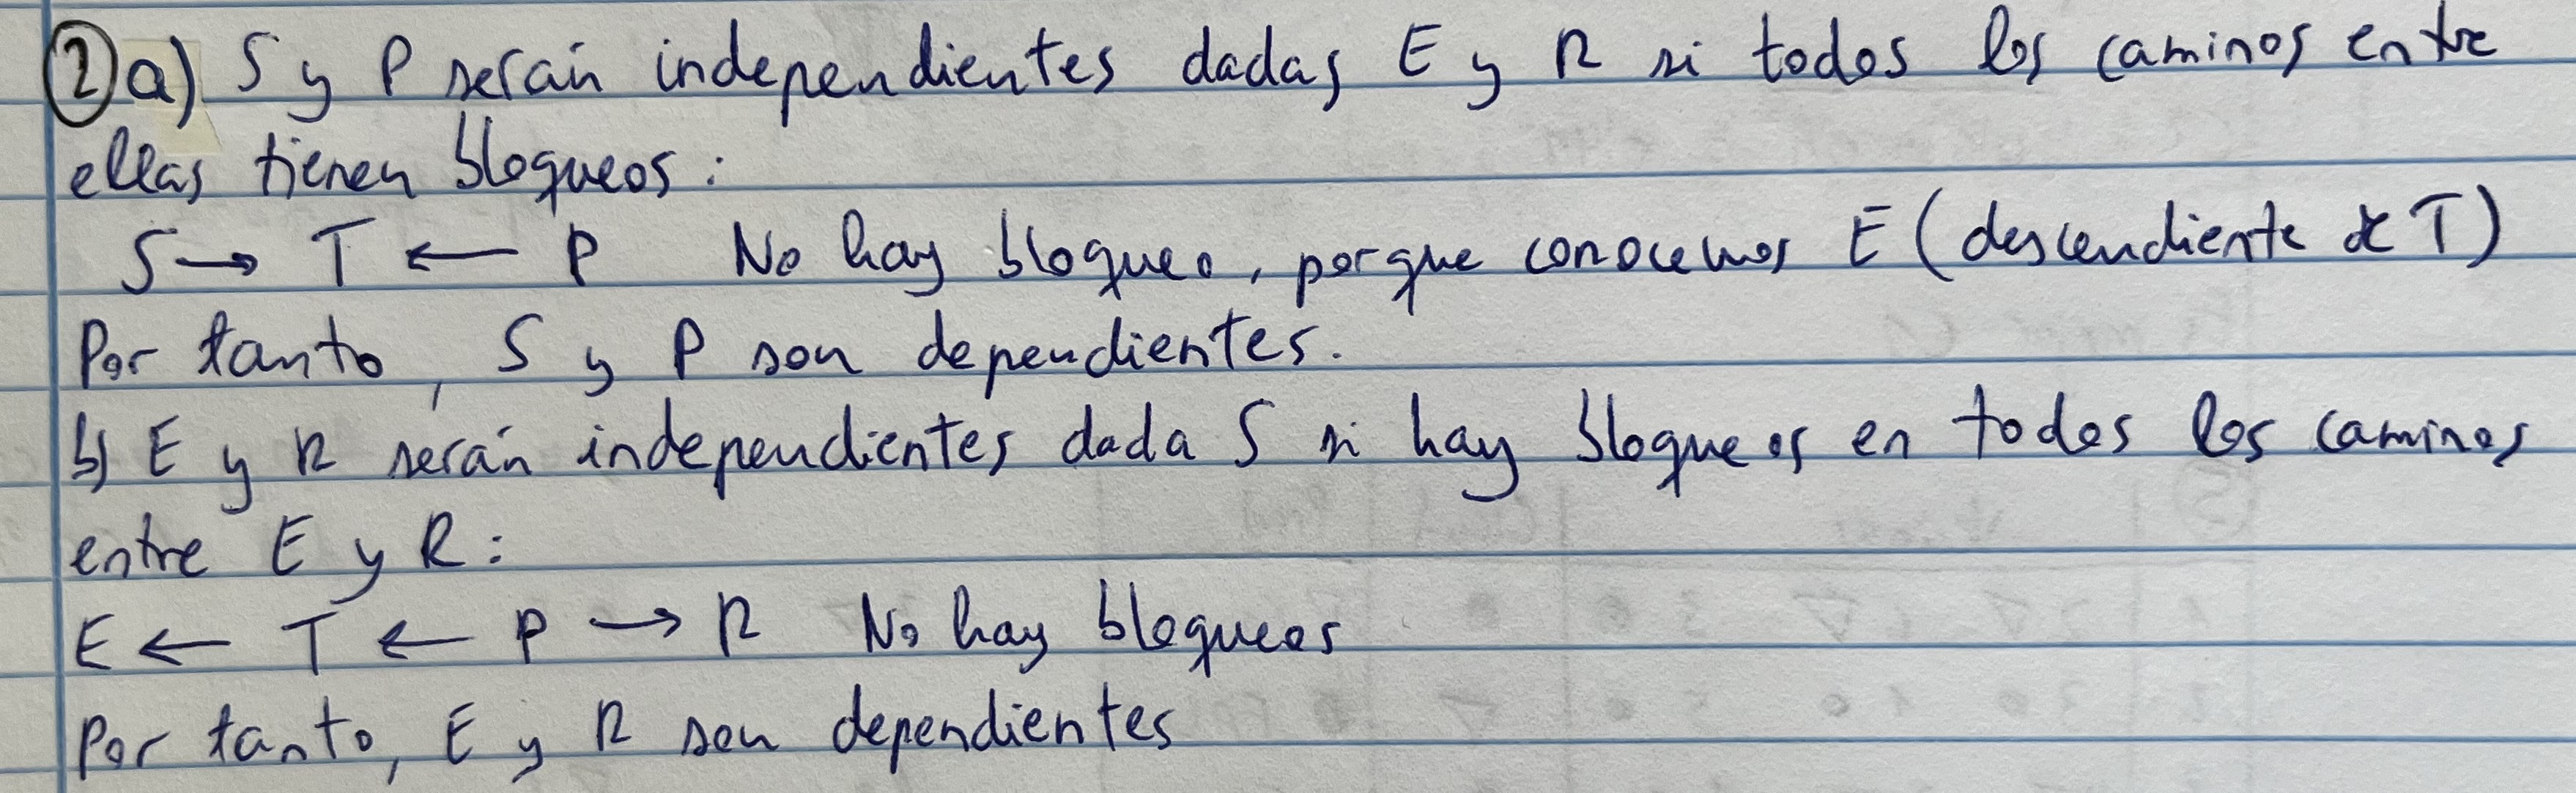 2) a) S y P serán independientes dadas E y R si todos los caminos entre
ellas tienen bloqueos:
S → T ← P No hay bloqueo, porque conocemos E (descendiente de T)
Por tanto, S y P son dependientes.
b) E y R serán independientes dada S si hay bloqueos en todos los caminos
entre E y R:
E ← T ← P → R No hay bloqueos
Por tanto, E y R son dependientes